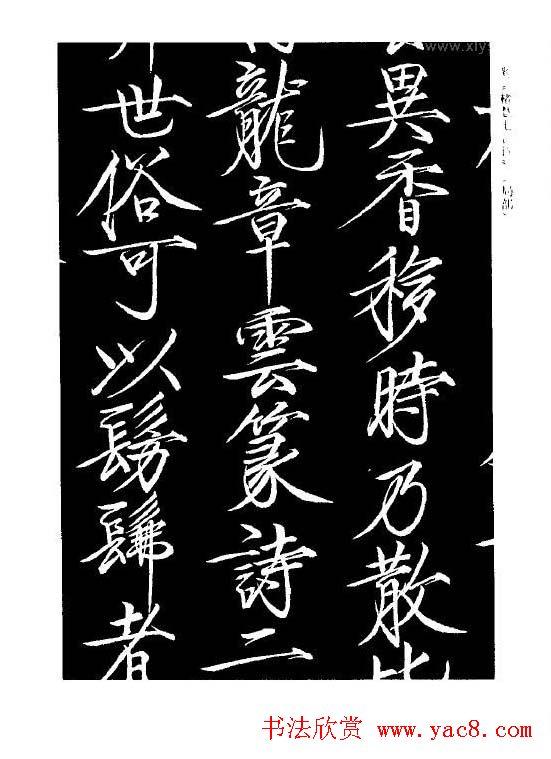 局部
異香移時乃散
龍章雲篆詩二
世俗可以髣髴者
书法欣赏 www.yac8.com